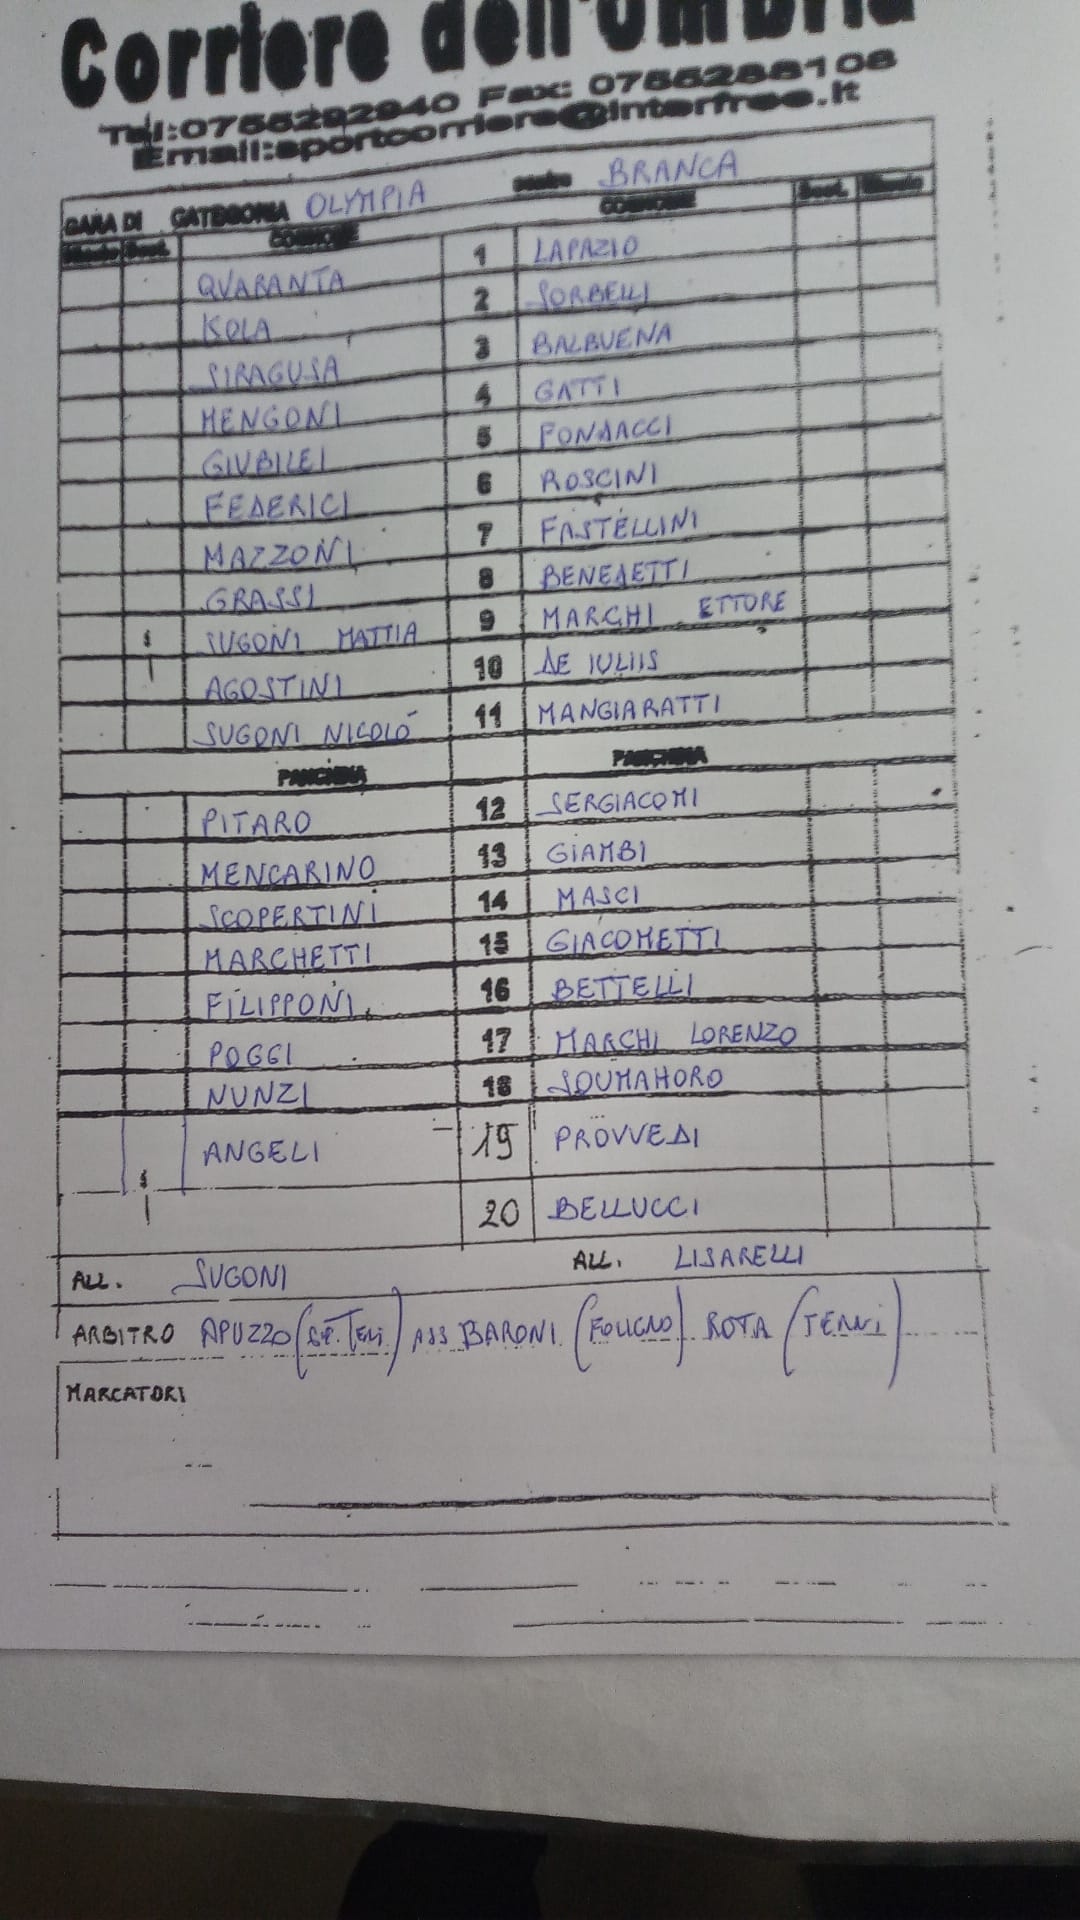 Corriere dell'Umbria
Tel:0755292940 Fax: 0755288108
Email:sportcorriere@interfree.it
GARA DI CATEGORIA OLYMPIA BRANCA
COGNOME COGNOME
QUARANTA 1 LAPAZIO
KOLA 2 SORBELLI
SIRAGUSA 3 BALBUENA
MENGONI 4 GATTI
GIUBILEI 5 FONDACCI
FEDERICI 6 ROSCINI
MAZZONI 7 FASTELLINI
GRASSI 8 BENEDETTI
SUGONI MATTIA 9 MARCHI ETTORE
AGOSTINI 10 DE IULIIS
SUGONI NICOLÒ 11 MANGIARATTI
PANCHINA PANCHINA
PITARO 12 SERGIACOMI
MENCARINO 13 GIAMBI
SCOPERTINI 14 MASCI
MARCHETTI 15 GIACOMETTI
FILIPPONI 16 BETTELLI
POGGI 17 MARCHI LORENZO
NUNZI 18 SOUMAHORO
ANGELI 19 PROVVEDI
20 BELLUCCI
ALL. SUGONI ALL. LISARELLI
ARBITRO APUZZO ASS BARONI (FOLIGNO) ROTA (TERNI)
MARCATORI